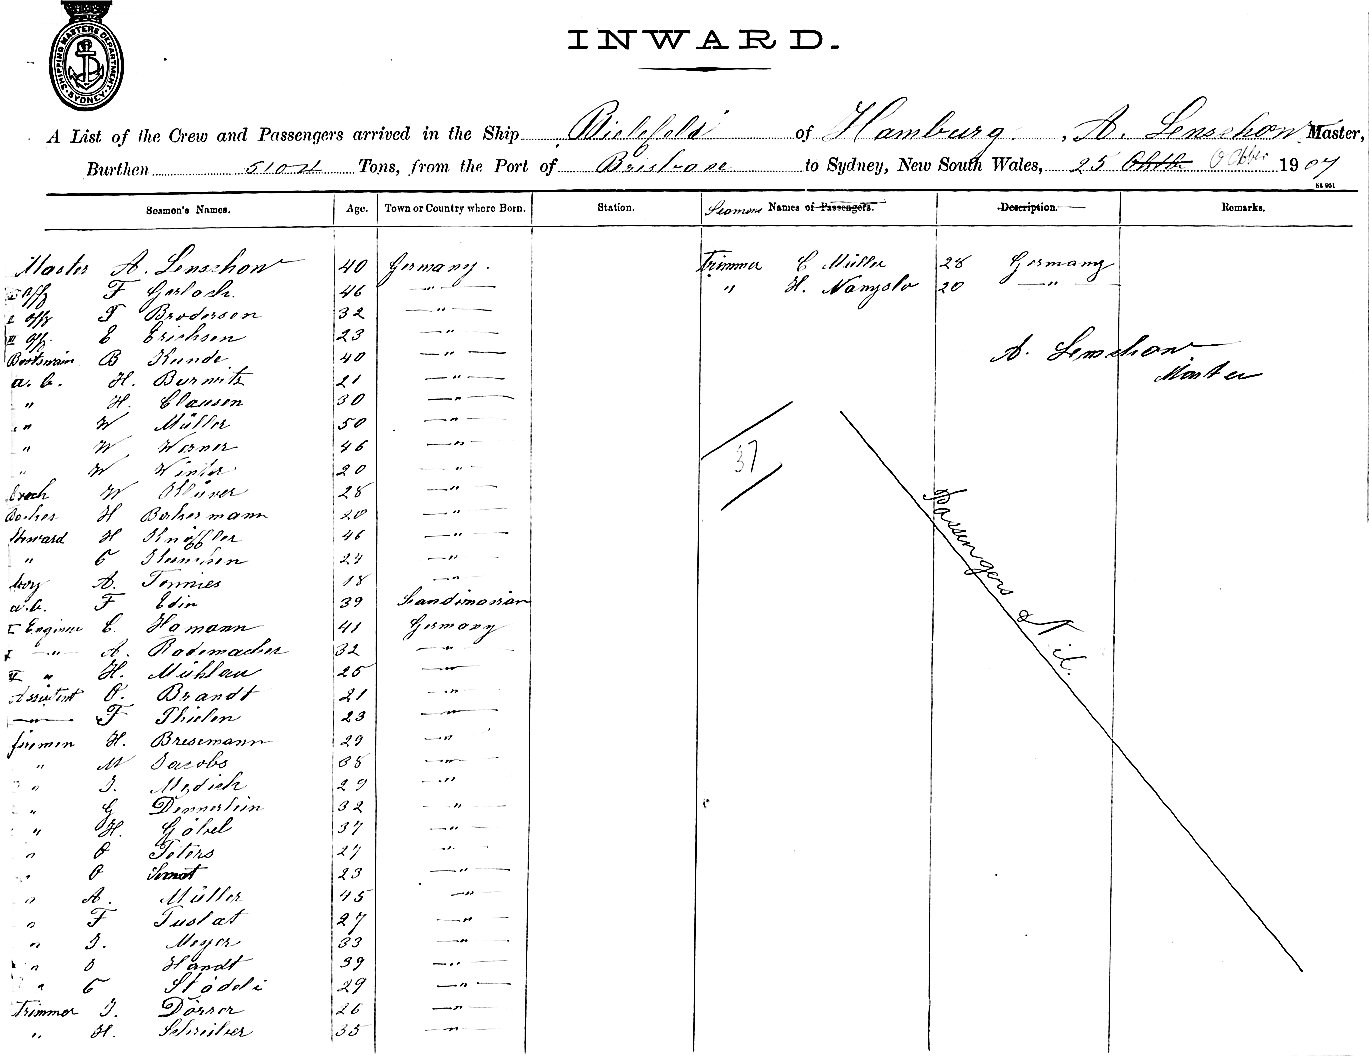 SHIPPING MASTERS DEPARTMENT SYDNEY
INWARD.
A List of the Crew and Passengers arrived in the Ship Bielefeld of Hamburg, A. Lenschow Master,
Burthen Tons, from the Port of Brisbane to Sydney, New South Wales, 25 October 1907
Seamen's Names. Age. Town or Country where Born. Station. Seamens Names of Passengers. Description. Remarks.
Master A. Lenschow 40 Germany. Trimmer C Müller 28 Germany
I off F Gerlach. 46 " " H. Nanyslo 20 "
II offz F Brodersen 32 "
III off. E Erichsen 23 "
Bootswain B Kunde 40 "
A. Lenschow
Master
a. b. H. Burwitz 21 "
" H. Clausen 30 "
" W Müller 50 "
" W Werner 46 "
37
" W Winter 20 "
W Klüver 28 "
H 20 "
Passengers Nil.
Steward H Knöffler 46 "
" C 24 "
boy A. Tennies 18 "
a.b. F Edin 39 Scandinavian
I Engineer C. Hamann 41 Germany
" A. Rademacher 32 "
III " H. Mühlau 25 "
Assistent O. Brandt 21 "
" F Thielen 23 "
firemen H. Bresemann 29 "
" M Jacobs 38 "
" J. 29 "
" G Dennerlein 32 "
" H. Göbel 37 "
" O Peters 27 "
" O 23 "
" A. Müller 45 "
" F Tuslat 27 "
" J. Meyer 33 "
" O Handt 39 "
" C Städeli 29 "
Trimmer J. Dörrer 26 "
" H. Schreiber 35 "